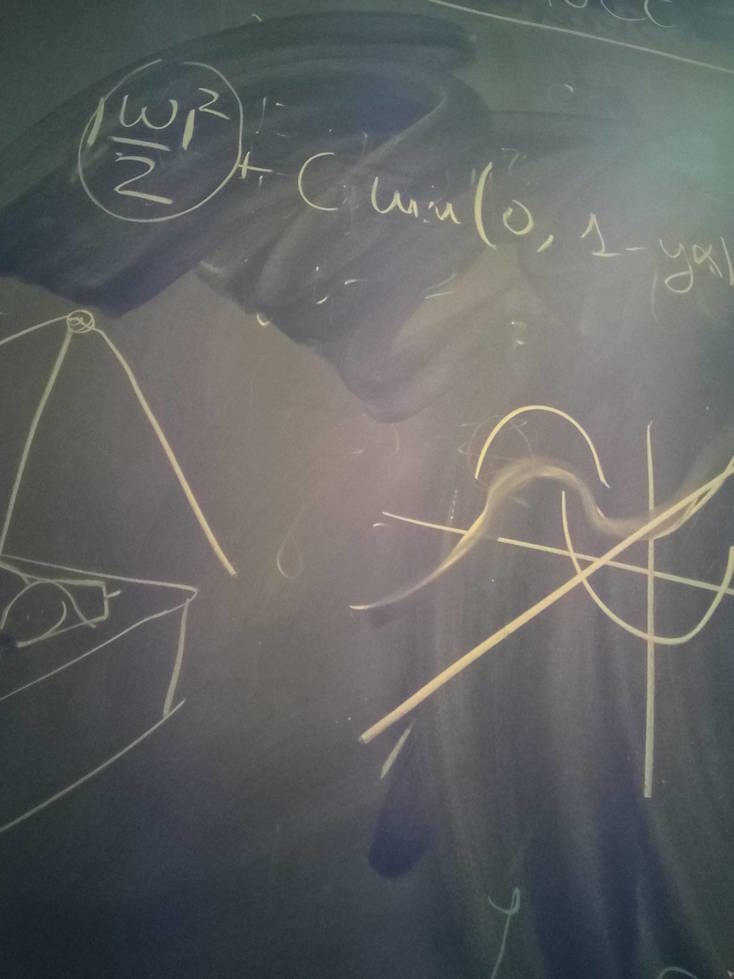 |w|²/2 + C min(0, 1-y